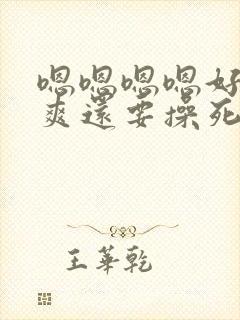 嗯嗯嗯嗯好
爽還要操死
王華乾